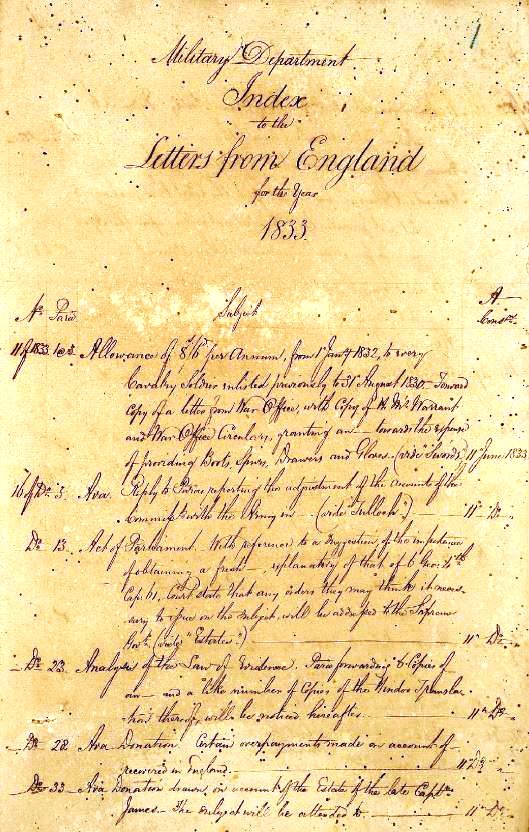 Military Department
Index
to the
Letters from England
for the Year
1833.
No. Para. Subject A
11 of 1833. 1 @ 3. Allowance of per Annum, from 1 Jany 1832, to every
Cavalry Soldier enlisted previously to 31st August 1830. Forward
Copy of a letter from War Office, with Copy of H. M's Warrant
and War Office Circulars, granting an — towards the expense
of providing Boots, Spurs, Drawers and Gloves. (vide "Swords") 11 June 1833
16 of Do. 3. Ava. Reply to Paras reporting the adjustment of the accounts of the
with the Army in — (vide "Tulloch") 11 " Do.
Do. 13. Act of Parliament. With reference to a suggestion of the
of obtaining a fresh — explanatory of that of 6 Geo: 4th
Cap: 61, Court state that any orders they may think it neces-
sary to issue on the subject will be addressed to the Supreme
Govt. (vide "Estates") 11 " Do.
Do. 23. Analysis of the Law of Evidence. Paras forwarding 6 Copies of
an — and a like number of Copies of the Hindoo Transla-
tion thereof, will be noticed hereafter. 11 " Do.
Do. 28. Ava Donation. Certain overpayments made on account of —
recovered in England. 11 Do.
Do. 33. Ava Donation drawn on account of the Estate of the late Captn.
James — The subject will be attended to 11 " Do.